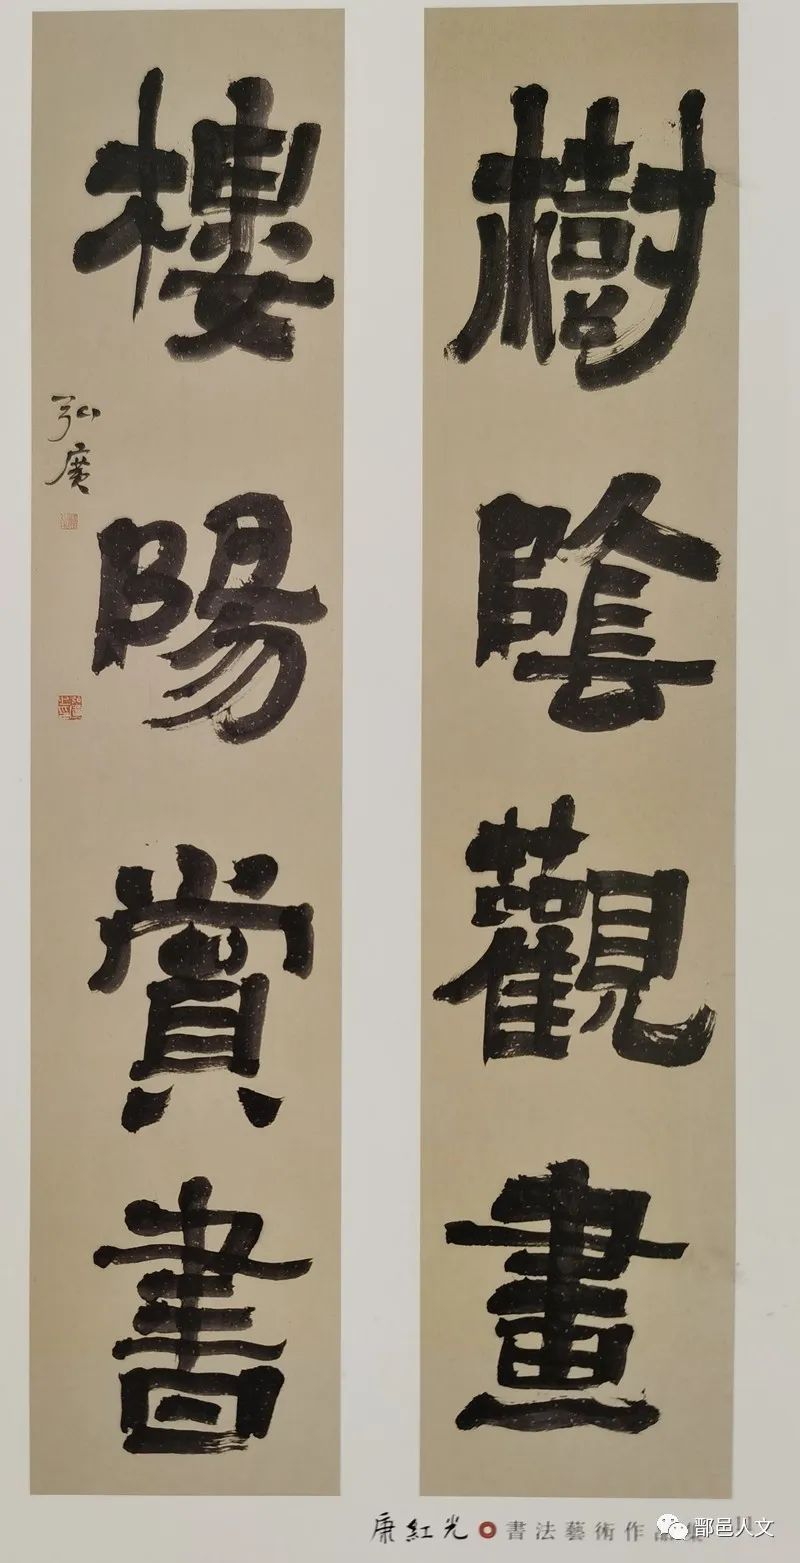 樹陰觀畫
樓陽賞書
弘廣
康紅光 書法藝術作品集
鄑邑人文